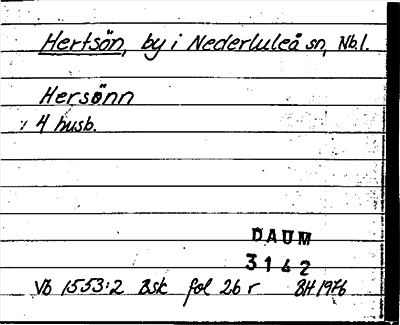 Hertsön, by i Nederluleå sn, Nb.l.
Hersönn
4 husb.
DAUM
3142
VB 1553:2 Bsk fol 26 r BH 1976